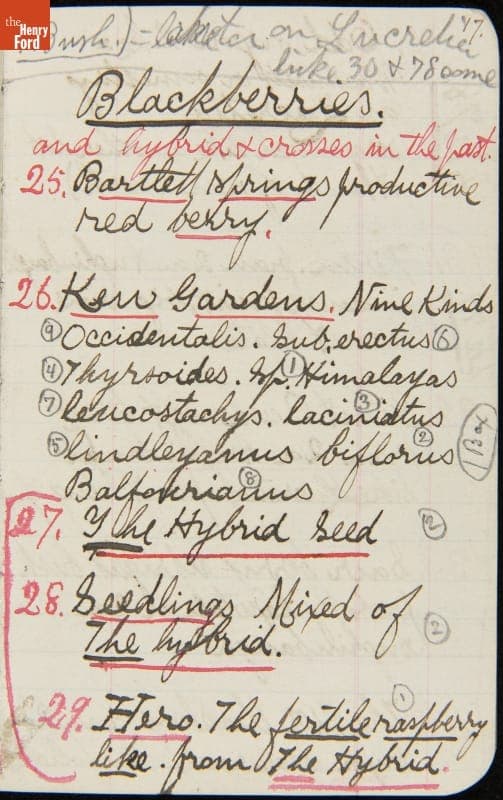 the
Henry
Ford
47.
Bush.) - on Lucretia
like 30 & 78 some
Blackberries.
and hybrid & crosses in the past.
25. Bartlett Springs productive
red berry.
26. Kew Gardens. Nine Kinds
⑨ Occidentalis. Sub. erectus ⑥
④ Thyrsoides. Sp. ① Himalayas
⑦ leucostachys. laciniatus ③
⑤ lindleyanus biflorus ②
Balfourianus ⑧
1 Box
27. The Hybrid Seed ②
28. Seedlings Mixed of
The hybrid. ②
29. Hero. The fertile raspberry ①
like. from The Hybrid.